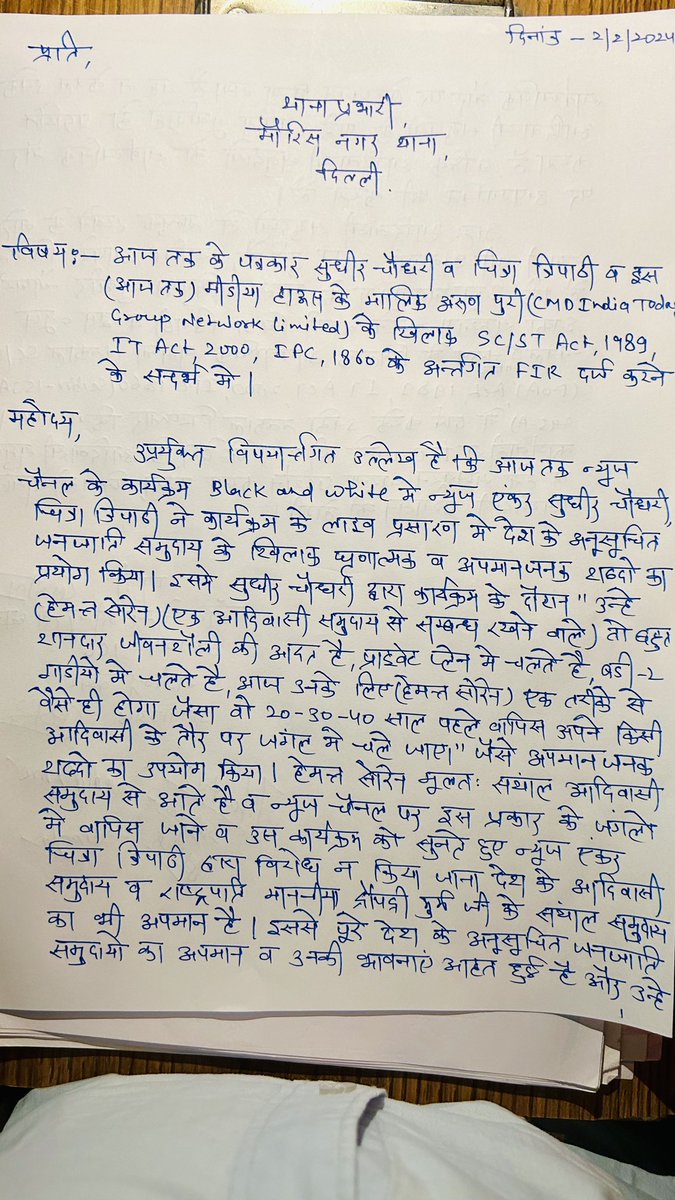 दिनांक - 2/2/2024
प्रति,
थाना प्रभारी,
मौरिस नगर थाना,
दिल्ली.
विषय:- आज तक के पत्रकार सुधीर चौधरी व चित्रा त्रिपाठी व इस
(आज तक) मीडीया हाऊस के मालिक अरुण पुरी (CMD India Today
Group Network Limited) के खिलाफ SC/ST Act, 1989,
IT Act, 2000, IPC, 1860 के अन्तर्गत FIR दर्ज करने
के सन्दर्भ मे।
महोदय,
उपर्युक्त विषयान्तर्गत उल्लेख है कि आज तक न्यूज
चैनल के कार्यक्रम Black and White मे न्यूज एंकर सुधीर चौधरी,
चित्रा त्रिपाठी ने कार्यक्रम के लाइव प्रसारण मे देश के अनुसूचित
जनजाति समुदाय के खिलाफ घृणात्मक व अपमानजनक शब्दो का
प्रयोग किया। इसमे सुधीर चौधरी द्वारा कार्यक्रम के दौरान "उन्हे
(हेमन्त सोरेन) (एक आदिवासी समुदाय से सम्बन्ध रखने वाले) तो बहुत
शानदार जीवनशैली की आदत है, प्राइवेट प्लेन मे चलते है, बडी-2
गाडीयो मे चलते है, आज उनके लिए (हेमन्त सोरेन) एक तरीके से
वैसे ही होगा जैसा वो 20-30-40 साल पहले वापिस अपने किसी
आदिवासी के तौर पर जगंल मे चले जाए।" जैसे अपमानजनक
शब्दो का उपयोग किया। हेमन्त सोरेन मूलत: सथांल आदिवासी
समुदाय से आते है व न्यूज चैनल पर इस प्रकार के जंगलो
मे वापिस जाने व उस कार्यक्रम को सुनते हुए न्यूज एंकर
चित्रा त्रिपाठी द्वारा विरोध न किया जाना देश के आदिवासी
समुदाय व राष्ट्रपति माननीया द्रौपदी मुर्मु जी के सथांल समुदाय
का भी अपमान है। इससे पूरे देश के अनुसूचित जनजाति
समुदायो का अपमान व उनकी भावनाएं आहत हुई है और, उन्हे